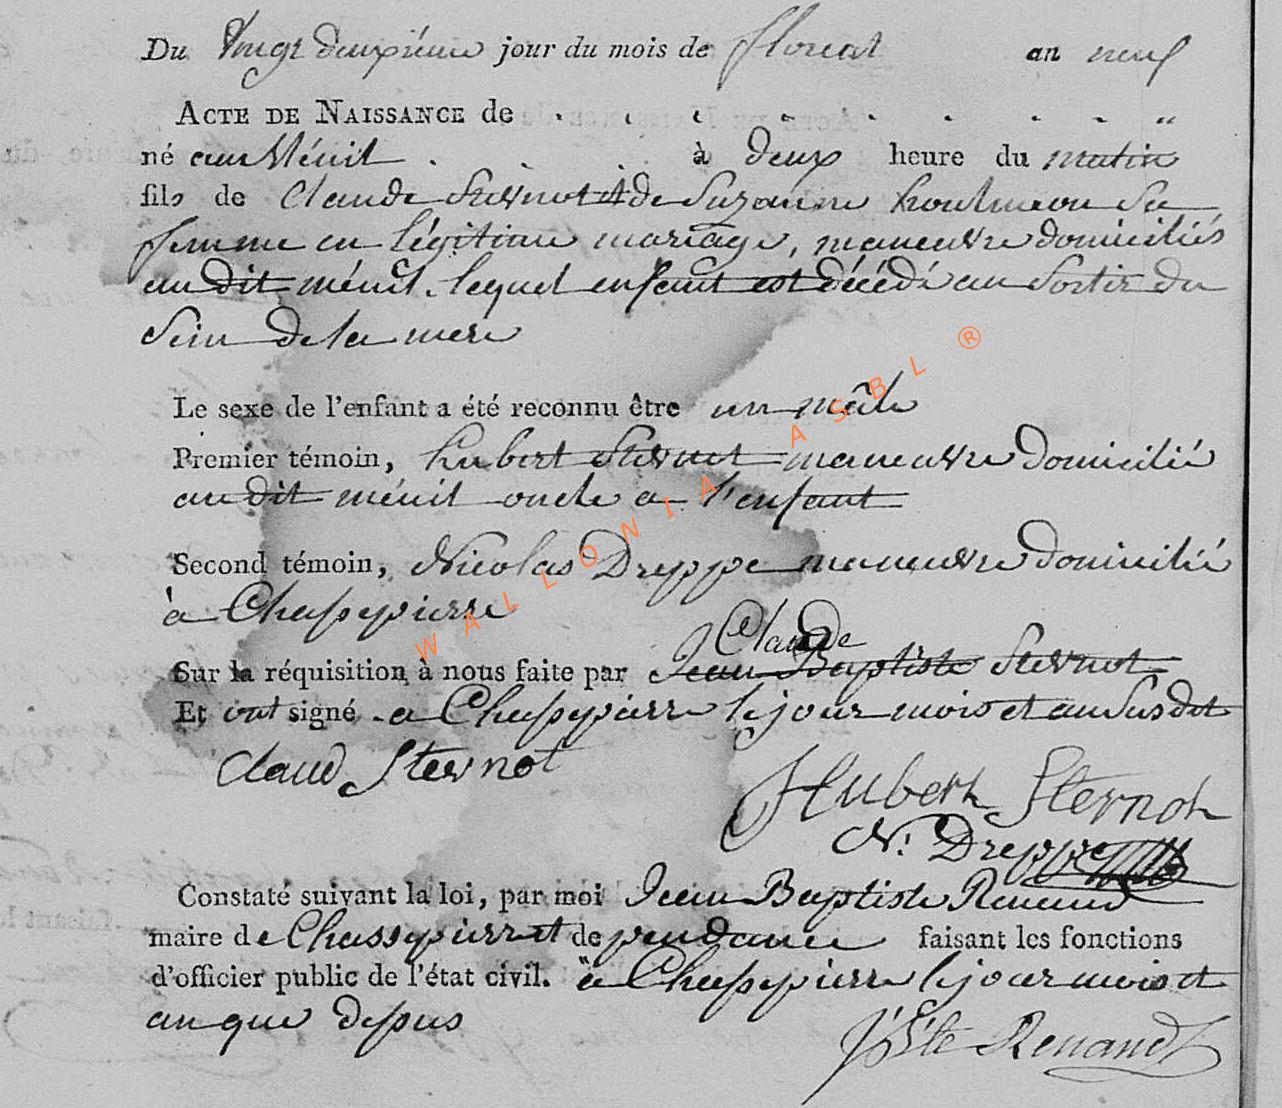 Du Vingt deuxiéme jour du mois de floreal an neuf
ACTE DE NAISSANCE de . . . . . . . . "
né au Ménil . . . à deux heure du matin
fils de Claude Sternot et de Suzanne houlmon Sa
femme en légitime mariage, maneuvre domiciliés
au dit ménil. lequel enfant est décédé au Sortir du
Sein de la mere
Le sexe de l'enfant a été reconnu être un mâle
Premier témoin, hubert Sternot maneuvre domicilié
au dit ménil oncle a l'enfant
Second témoin, Nicolas Dreppe maneuvre domicilié
à Chassepierre
Claude
Sur la réquisition à nous faite par Jean Baptiste Sternot
Et ont signé a Chassepierre le jour mois et an Susdit
Claud Sternot
Hubert Sternot
N. Dreppe
Constaté suivant la loi, par moi Jean Baptiste Renaud
maire de Chassepierre et dependance faisant les fonctions
d'officier public de l'état civil. à Chassepierre le jour mois et
an que dessus
J Bte Renaud
WALLONIA ASBL ®